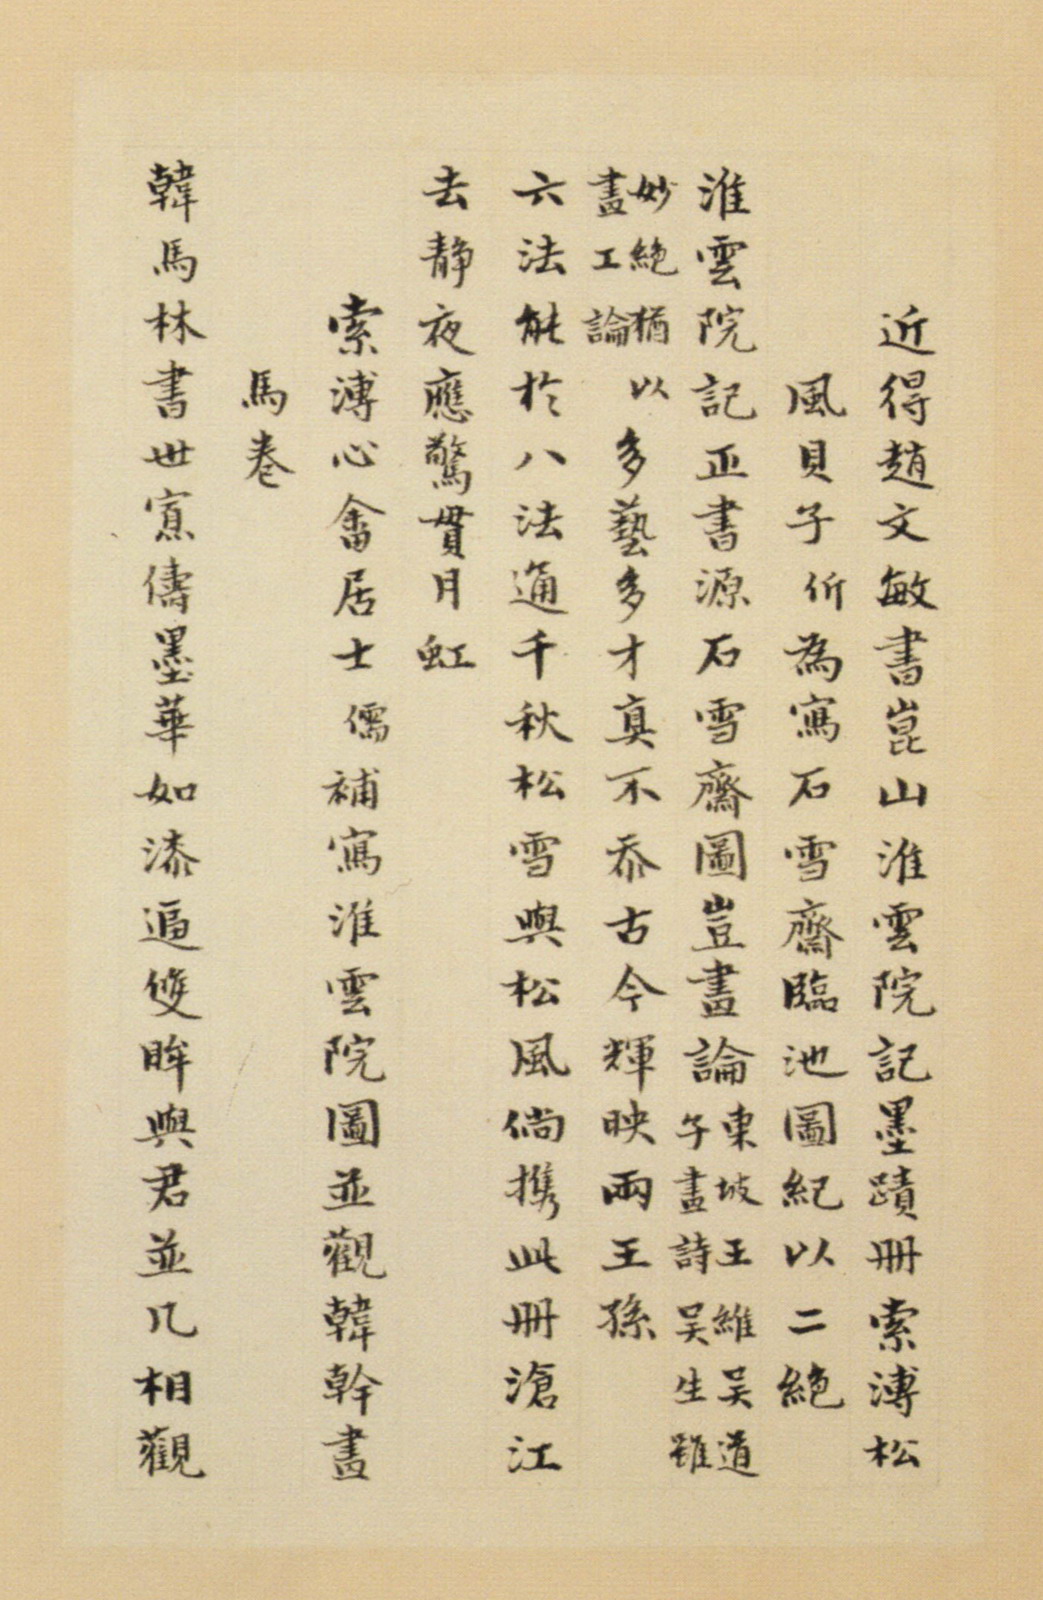 近得趙文敏書崑山淮雲院記墨蹟冊索溥松
風貝子伒為寫石雪齋臨池圖紀以二絕
淮雲院記正書源石雪齋圖豈畫論東坡王維吳道子畫詩吳生雖
妙絕猶以畫工論多藝多才真不忝古今輝映兩王孫
六法能於八法通千秋松雪與松風倘携此冊滄江
去靜夜應驚貫月虹
索溥心畬居士儒補寫淮雲院圖並觀韓幹畫
馬卷
韓馬林書世寡儔墨華如漆逼雙眸與君並几相觀